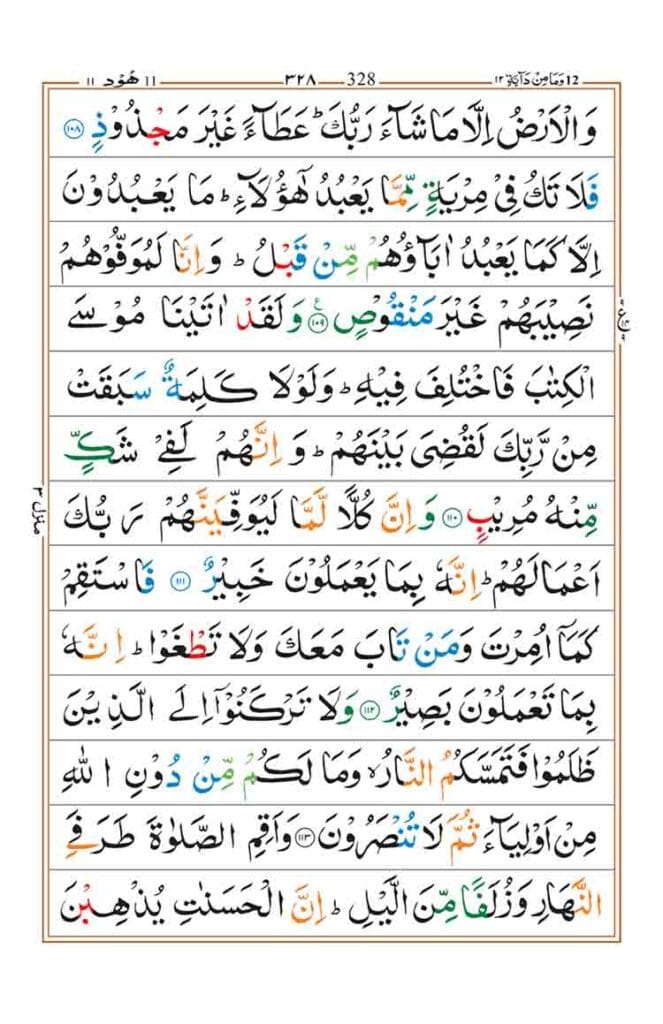 ١١ هُوْد 11 ٣٢٨ 328 وَمَا مِنْ دَآبَّةٍ ١٢ 12
وَالْاَرْضُ اِلَّا مَا شَآءَ رَبُّكَ ؕ عَطَآءً غَيْرَ مَجْذُوْذٍ ﴿۱۰۸﴾
فَلَا تَكُ فِىْ مِرْيَةٍ مِّمَّا يَعْبُدُ هٰٓؤُلَآءِ ؕ مَا يَعْبُدُوْنَ
اِلَّا كَمَا يَعْبُدُ اٰبَآؤُهُمْ مِّنْ قَبْلُ ؕ وَاِنَّا لَمُوَفُّوْهُمْ
نَصِيْبَهُمْ غَيْرَ مَنْقُوْصٍ ﴿۱۰۹﴾ وَلَقَدْ اٰتَيْنَا مُوْسَى
الْكِتٰبَ فَاخْتُلِفَ فِيْهِ ؕ وَلَوْلَا كَلِمَةٌ سَبَقَتْ
مِنْ رَّبِّكَ لَقُضِىَ بَيْنَهُمْ ؕ وَاِنَّهُمْ لَفِىْ شَكٍّ
مِّنْهُ مُرِيْبٍ ﴿۱۱۰﴾ وَاِنَّ كُلًّا لَّمَّا لَيُوَفِّيَنَّهُمْ رَبُّكَ
اَعْمَالَهُمْ ؕ اِنَّهٗ بِمَا يَعْمَلُوْنَ خَبِيْرٌ ﴿۱۱۱﴾ فَاسْتَقِمْ
كَمَاۤ اُمِرْتَ وَمَنْ تَابَ مَعَكَ وَلَا تَطْغَوْا ؕ اِنَّهٗ
بِمَا تَعْمَلُوْنَ بَصِيْرٌ ﴿۱۱۲﴾ وَلَا تَرْكَنُوْۤا اِلَى الَّذِيْنَ
ظَلَمُوْا فَتَمَسَّكُمُ النَّارُ ۙ وَمَا لَكُمْ مِّنْ دُوْنِ اللّٰهِ
مِنْ اَوْلِيَآءَ ثُمَّ لَا تُنْصَرُوْنَ ﴿۱۱۳﴾ وَاَقِمِ الصَّلٰوةَ طَرَفَىِ
النَّهَارِ وَزُلَفًا مِّنَ الَّيْلِ ؕ اِنَّ الْحَسَنٰتِ يُذْهِبْنَ
منزل ٣